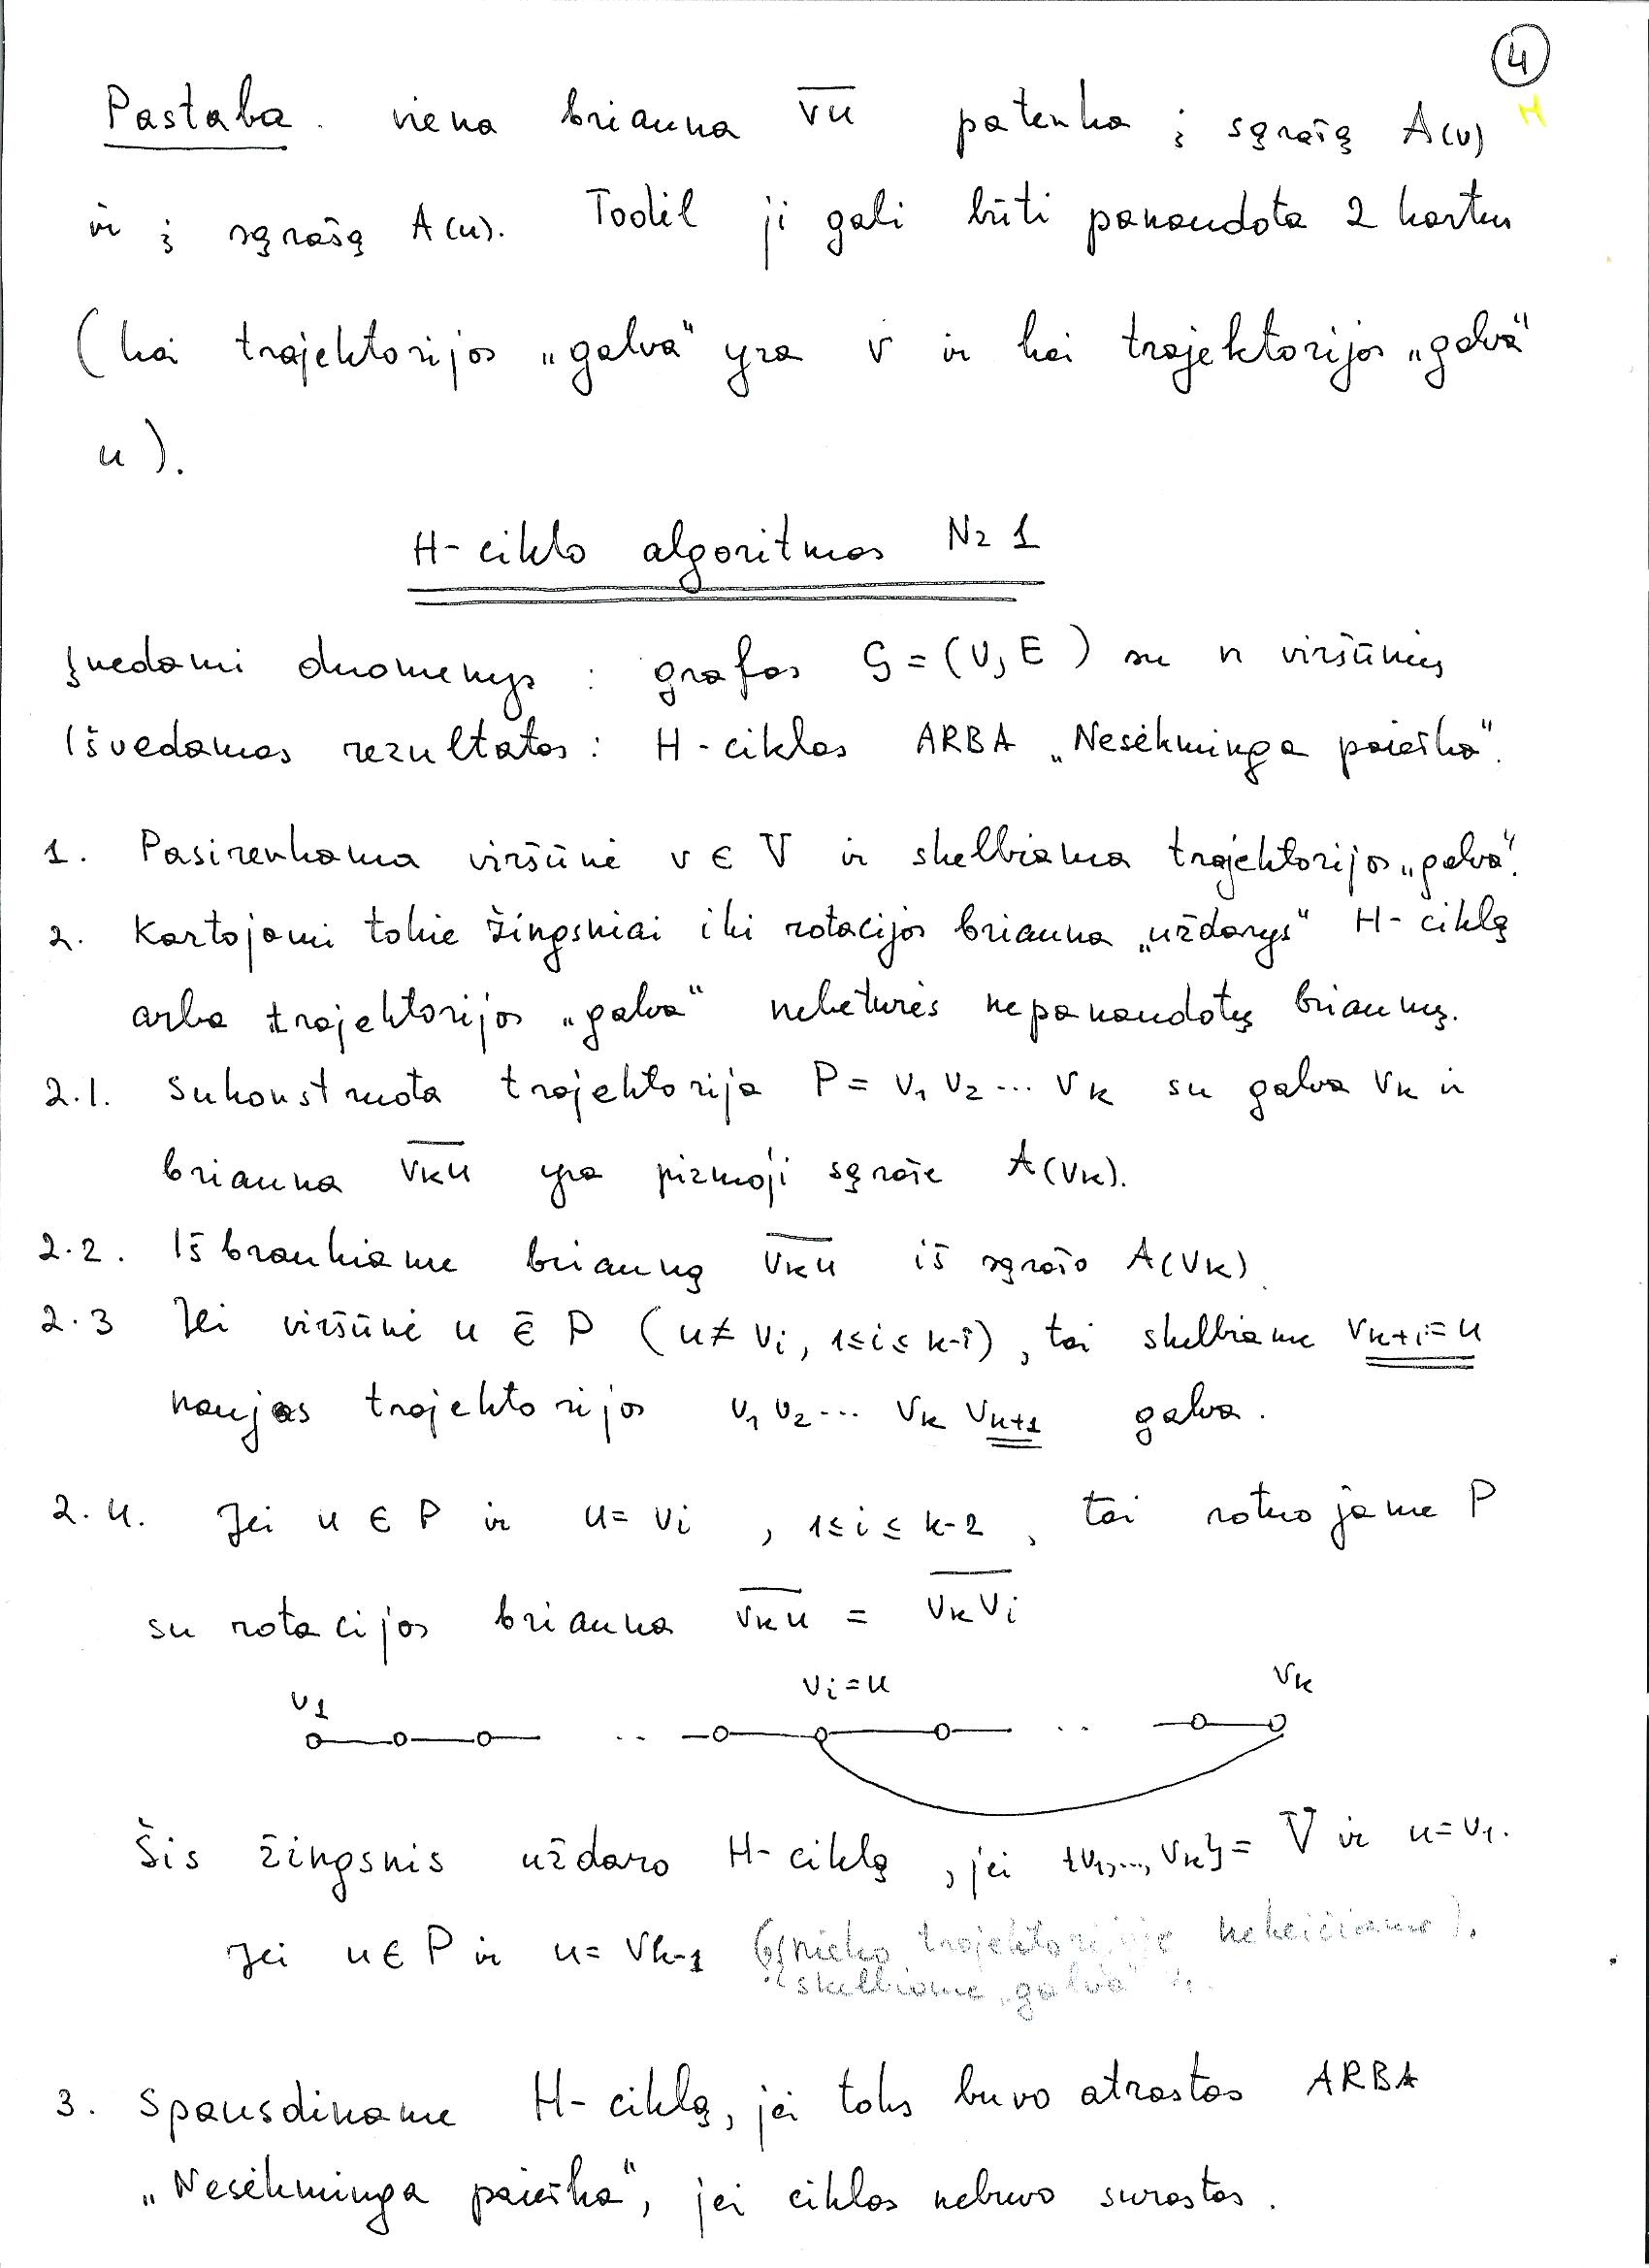 4
H
Pastaba. viena briauna v̅u̅ patenka į sąrašą A(v)
ir į sąrašą A(u). Todėl ji gali būti panaudota 2 kartus
(kai trajektorijos „galva“ yra v ir kai trajektorijos „galva“
u).
H-ciklo algoritmas Nr 1
Įvedami duomenys: grafas G=(V,E) su n viršūnių
Išvedamas rezultatas: H-ciklas ARBA „Nesėkminga paieška“.
1. Pasirenkama viršūnė v ∈ V ir skelbiama trajektorijos „galva“.
2. Kartojami tokie žingsniai iki rotacijos briauna „uždarys“ H-ciklą
arba trajektorijos „galva“ nebeturės nepanaudotų briaunų.
2.1. Sukonstruota trajektorija P = v₁ v₂ ... vₖ su galva vₖ ir
briauna v̅ₖu̅ yra pirmoji sąraše A(vₖ).
2.2. Išbraukiame briauną v̅ₖu̅ iš sąrašo A(vₖ)
2.3 Jei viršūnė u ∉ P (u≠vᵢ, 1≤i≤k-1), tai skelbiame vₖ₊₁=u
naujos trajektorijos v₁ v₂ ... vₖ vₖ₊₁ galva.
2.4. Jei u ∈ P ir u = vᵢ, 1≤i≤k-2, tai rotuojame P
su rotacijos briauna v̅ₖu̅ = v̅ₖv̅ᵢ
v₁ vᵢ=u vₖ
Šis žingsnis uždaro H-ciklą, jei {v₁,..., vₖ} = V ir u=v₁.
Jei u ∈ P ir u = vₖ₋₁ nieko trajektorijoje nekeičiame).
skelbiame „galva“
3. Spausdiname H-ciklą, jei toks buvo atrastas ARBA
„Nesėkminga paieška“, jei ciklas nebuvo surastas.